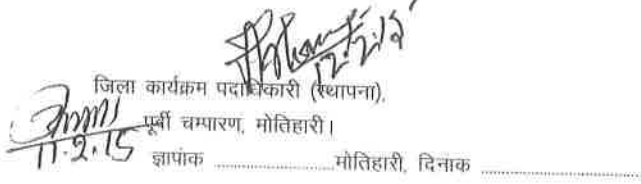 12.2.15
जिला कार्यक्रम पदाधिकारी (स्थापना),
पूर्वी चम्पारण, मोतिहारी।
11.2.15
ज्ञापांक ........................मोतिहारी, दिनाक ................................